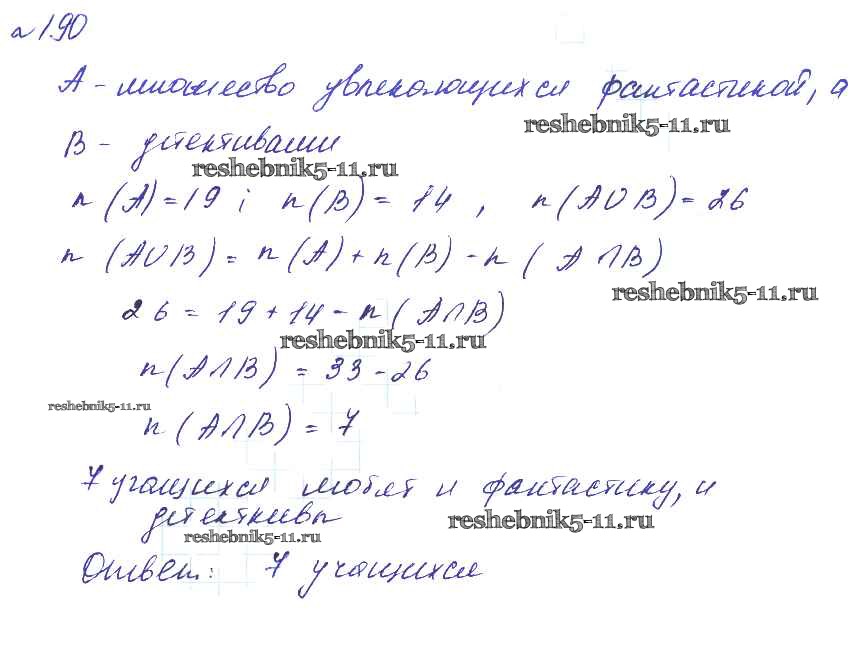 № 1.90
A - множество увлекающихся фантастикой, а
reshebnik5-11.ru
B - детективами
reshebnik5-11.ru
n (A) = 19 ; n (B) = 14 , n (A∪B) = 26
n (A∪B) = n (A) + n (B) - n ( A∩B)
reshebnik5-11.ru
26 = 19 + 14 - n ( A∩B)
reshebnik5-11.ru
n (A∩B) = 33 - 26
reshebnik5-11.ru
n (A∩B) = 7
7 учащихся любят и фантастику, и
детективы
reshebnik5-11.ru
reshebnik5-11.ru
Ответ: 7 учащихся